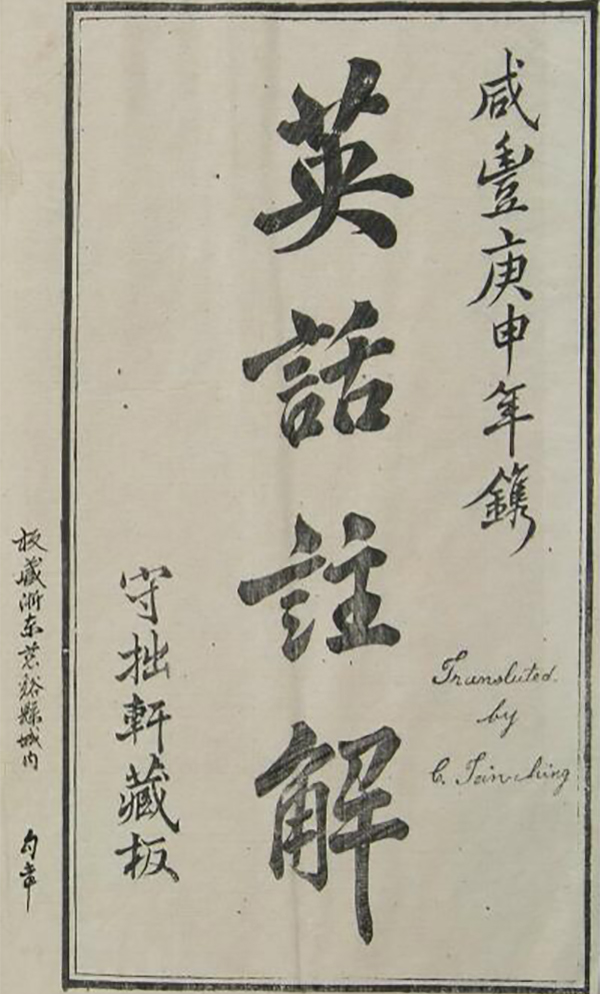 咸豐庚申年鐫
英話註解
Transluted
by
C. Tain-ching
守拙軒藏板
板藏浙东慈谿縣城内